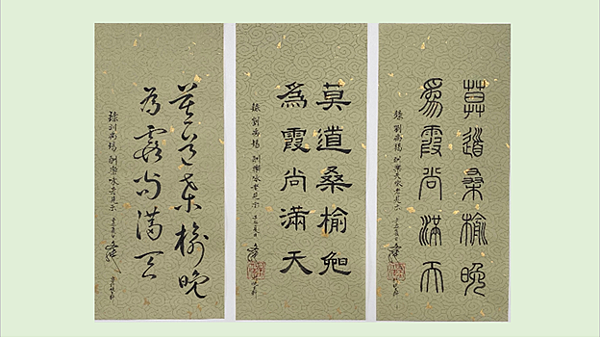 莫道桑榆晚
為霞尚滿天
錄劉禹錫 酬樂天咏老見示
莫道桑榆晚
為霞尚滿天
錄劉禹錫 酬樂咏老見示
莫道桑榆晚
為霞尚滿天
錄刘禹锡 酬樂咏老見示